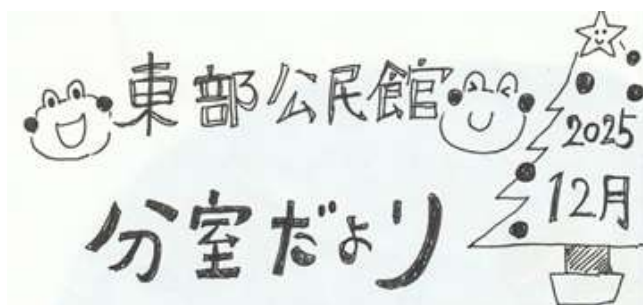 東部公民館
分室だより
2025
12月